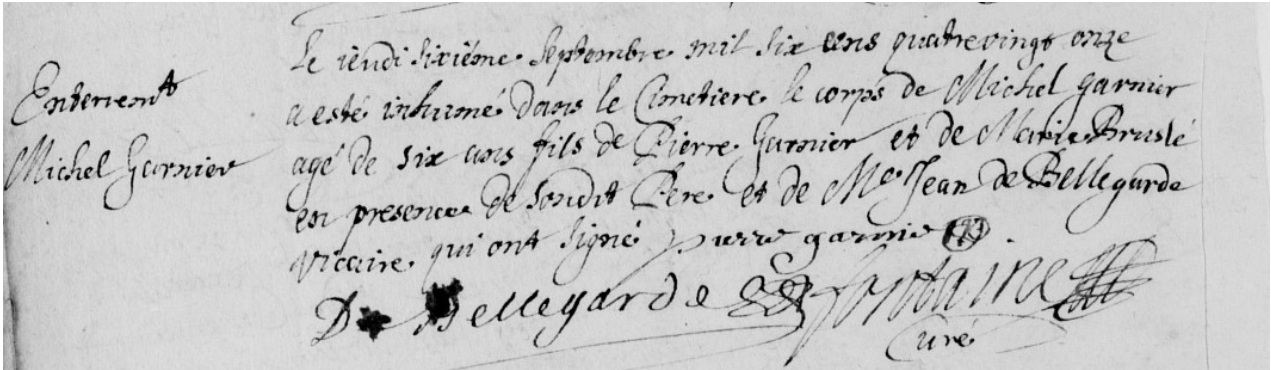 Enterrement
Michel Garnier
Le ieudi sixiéme Septembre mil six cens quatrevingt onze
a esté inhumé dans le Cimetiere le corps de Michel Garnier
agé de six ans fils de Pierre Garnier et de Marie Bruslé
en presence de sondit Pere et de Me Jean De Bellegarde
vicaire qui ont signé pierre garnie
De Bellegarde fontaine
Curé